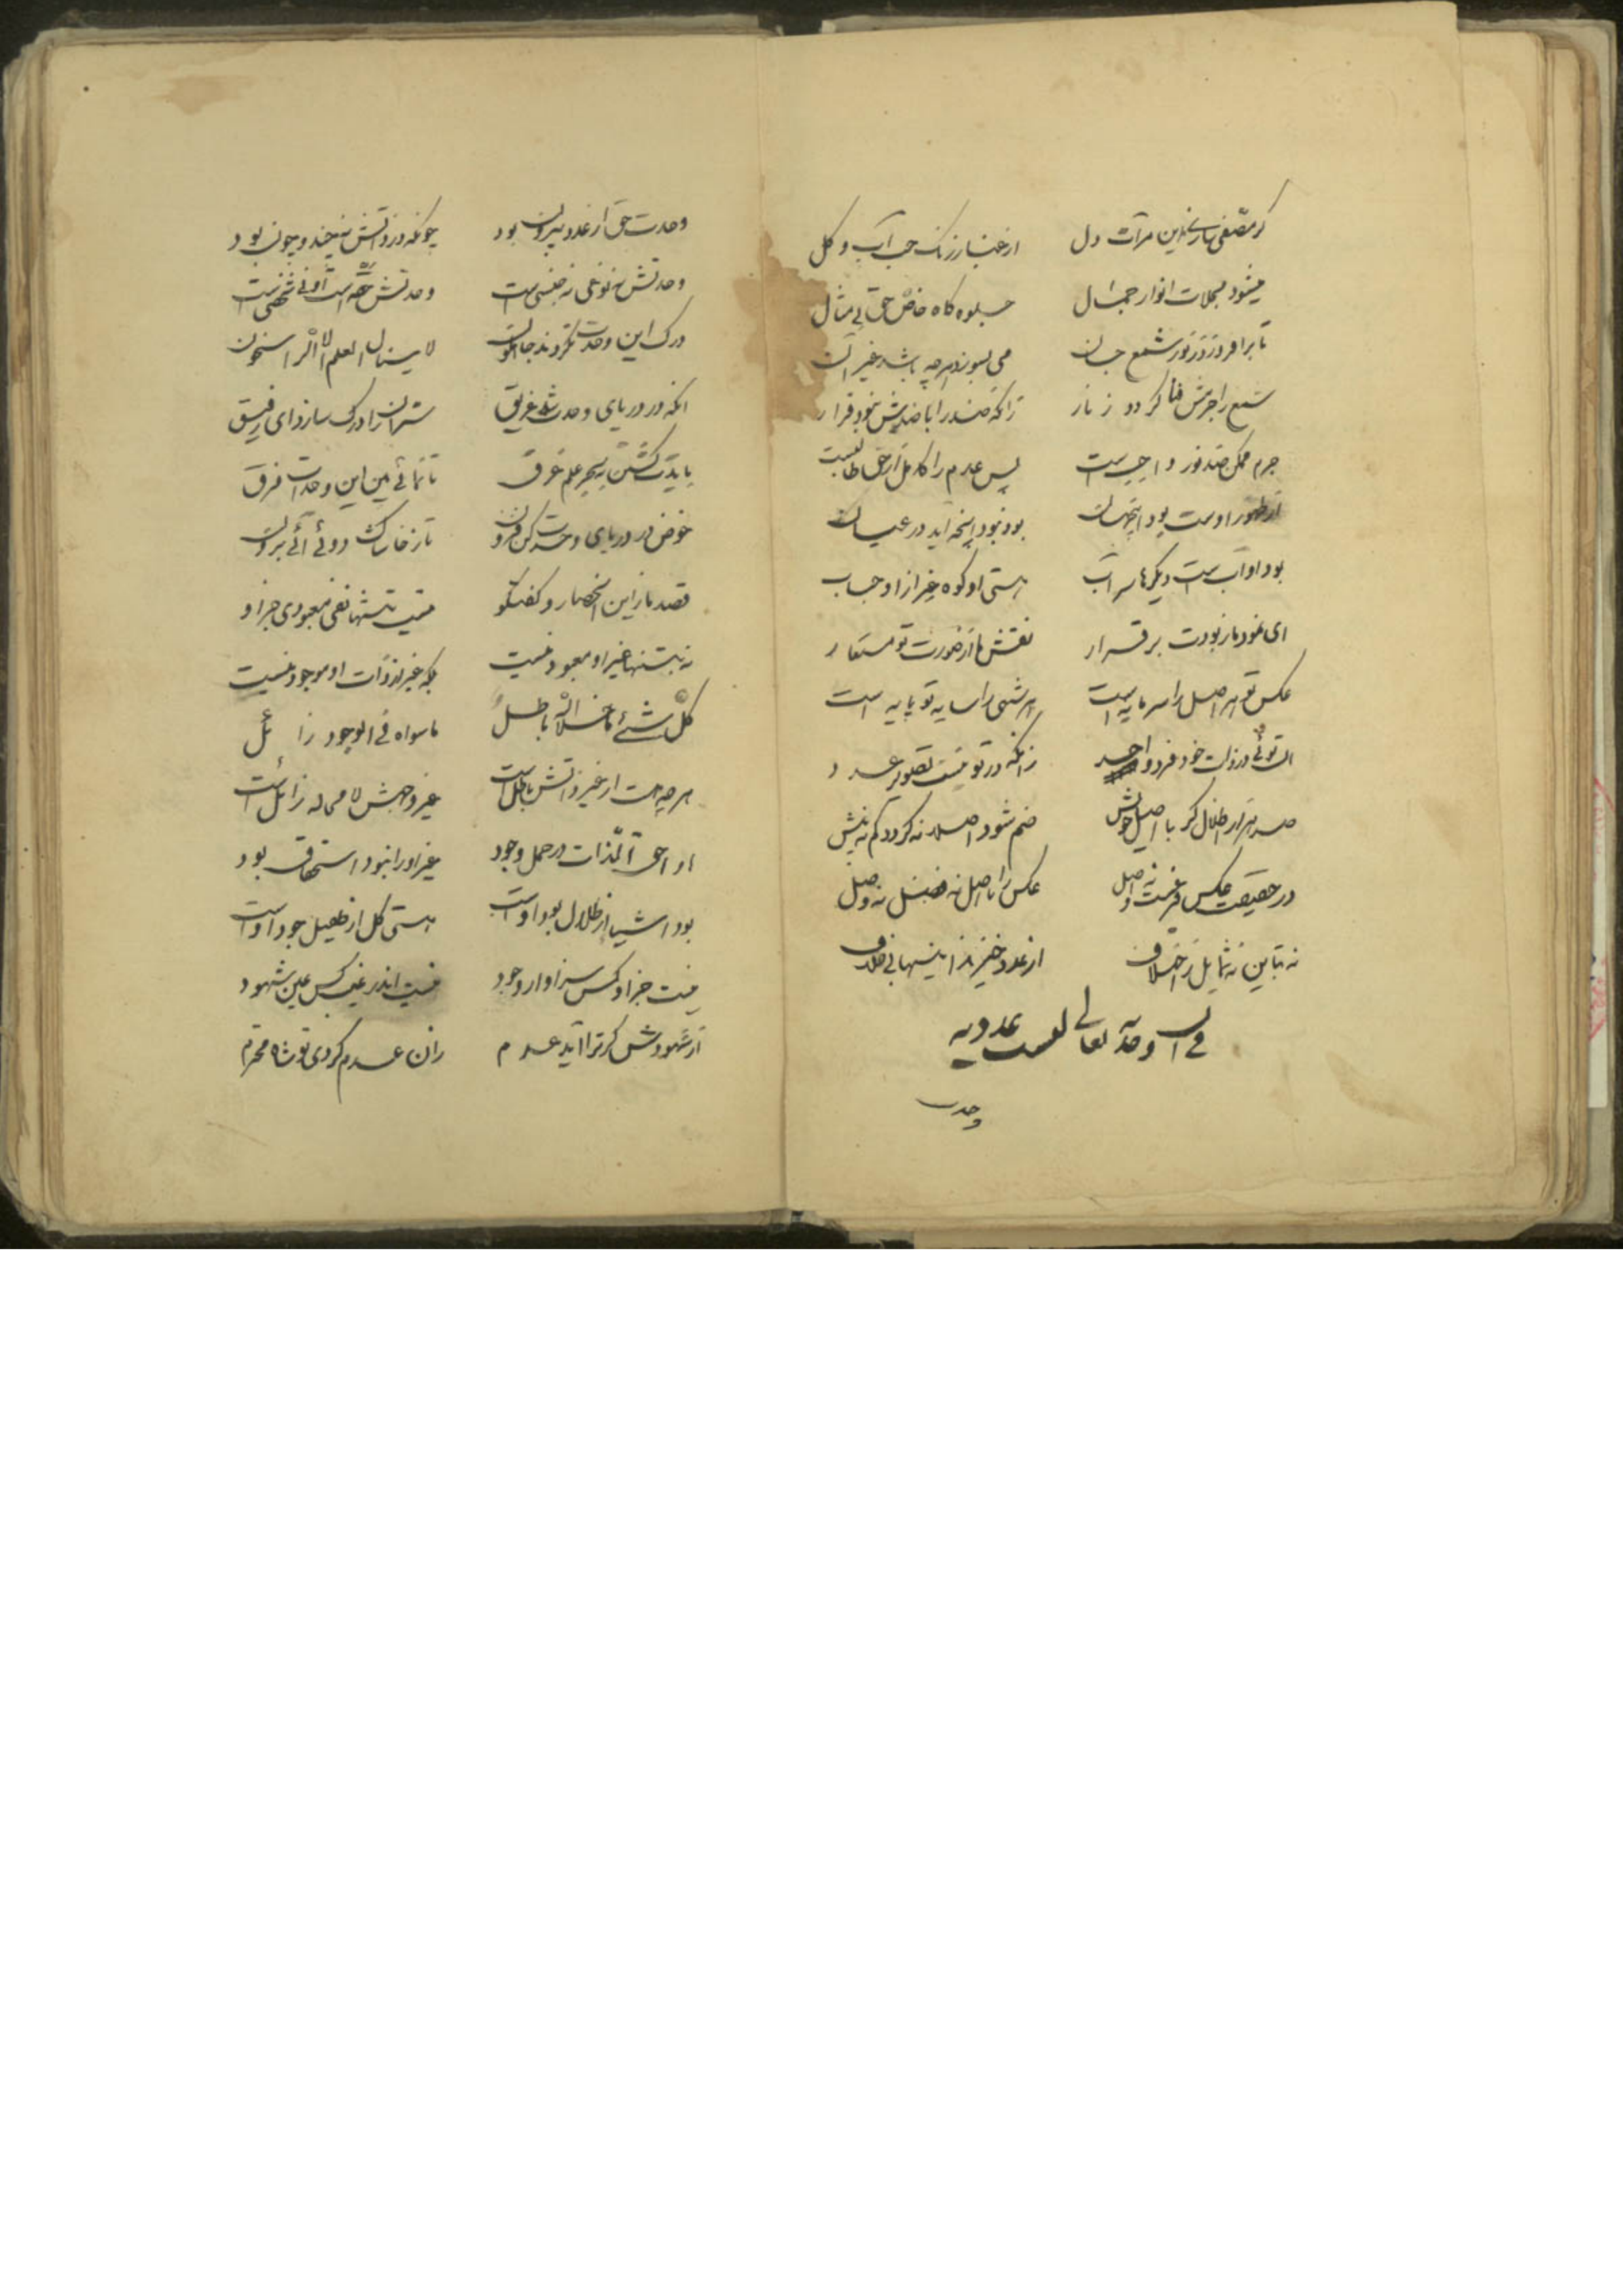 گر مصفی سازی این مرآت دل از غبار زنگ حب آب و گل
میشود مجلات انوار جمال جلوه گاه خاص حق بی مثال
تا برافروزد ز نور شمع جان می بسوزد هرچه باشد غیر آن
شمع را جرمش فنا گردد ز نار زآنکه ضد را با ضدش نبود قرار
جرم ممکن ضد نور واجب است پس عدم را کامل از حق طالبست
از ظهور اوست بود این جهان بود نبود اینچه آید در عیان
بود او آب ست دیگرها سراب هستی او کوه غیر از او حباب
ای نمود ما ز بودت برقرار نقش ما از صورت تو مستعار
عکس تو هر اصل را سرمایه است هر شئی را سایه تو پایه است
آن توئی در ذات خود فرد واحد زانکه در تو نیست تصویر عدد
صد هزار اظلال گر با اصل خویش ضم شود اصلا نه گردد کم نه بیش
در حقیقت عکس فرعست و نه اصل عکس را با اصل نه فصل نه وصل
نه تباین نه تماثل نه اختلاف از عدد خیزند اینها بی خلاف
فی ان وحدته تعالی لیست عددیه
وحدت
وحدت حق از عدد بیرون بود چونکه در ذاتش نه چند و چون بود
وحدتش نه نوعی نه جنسی ست وحدتش حقه است آن نی شخصی ست
درک این وحدت نکردند جاهلون لا ینال العلم الا الراسخون
آنکه در دریای وحدت شد غریق سر آن را درک سازد ای رفیق
بایدت گشتن به بحر علم غرق تا نمائی بین این وحدات فرق
خوض در دریای وحدت کن فزون تا ز خاشاک دوئی آئی برون
قصد ما زین انحصار و گفتگو نیست تنها نفی معبودی جز او
نه بتنها غیر او معبود نیست بلکه غیر از ذات او موجود نیست
کل شئ ما خلا الله باطل ما سواه فی الوجود زائل
هرچه هست از غیر ذاتش باطل است غیر وجهش لا محاله زائل است
او احق آمد بذات در حمل وجود غیر او را نبود استحقاق بود
بود اشیا از ظلال بود اوست هستی کل از طفیل جود اوست
نیست جز او کس سزاوار وجود نیست اندر غیب کس عین شهود
از شهودش گر ترا آید عدم زان عدم گردی تو شاه محترم